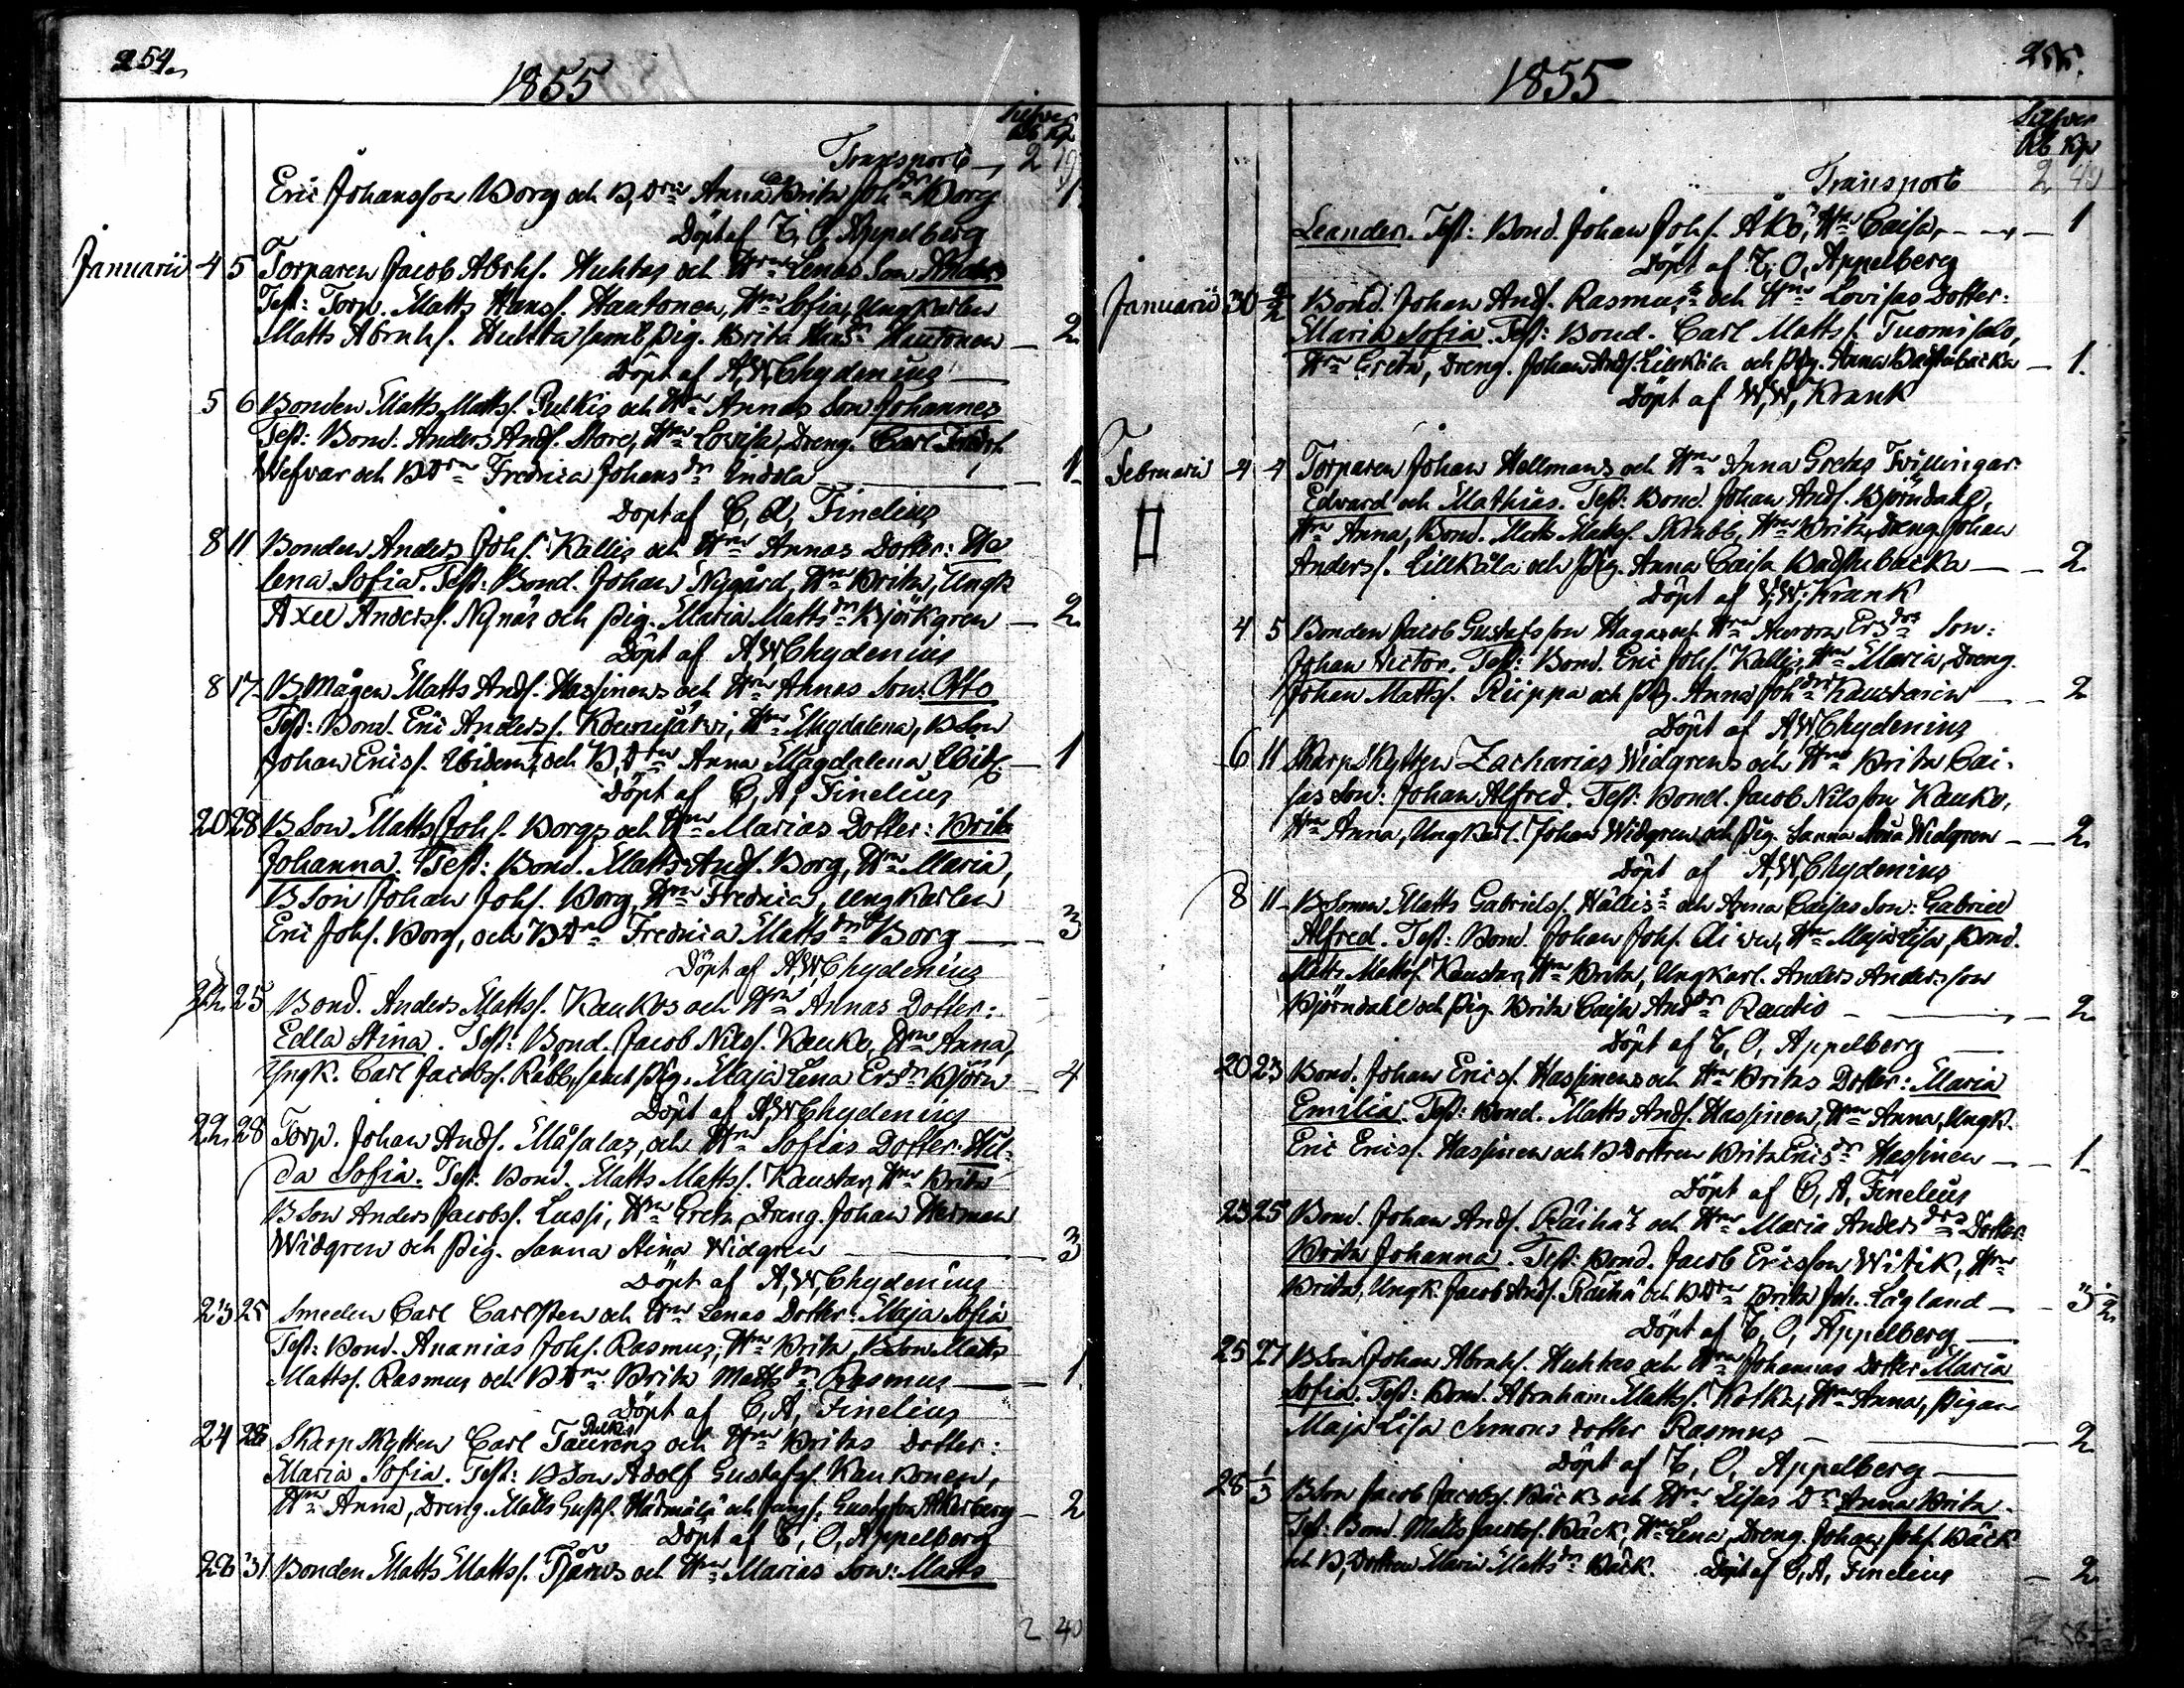 254.
1855
Silfver
Rb Kp
Transport 2 19
Eric Johansson Borg och B,Drn Anna Brita Johdr Borg 1
Döpt af C, O, Appelberg
Januarii 4 5 Torparen Jacob Abrhs. Huhtas och Hru Lenas Son Anders
Test: Torp. Matts Hanss. Hautonen, Hru Sofia, Ungkarlen
Matts Abrahs. Huhta samt Pig. Brita Hansdr Hautonen 2
Döpt af A,W,Chydenius
5 6 Bonden Matts Mattss. Pulkis och Hru Annas Son Johannes
Test: Bond. Anders Ands. Store, Hru Lovisa, Dreng. Carl Fredrik
Wefvar och B Drn Fredrica Johansdr Indola 1
Döpt af C, A, Finelius
8 11 Bonden Anders Johs. Kallis och Hru Annas Dotter: He
lena Sofia. Test: Bond. Johan Nygård, Hru Brita, Ungk
Axel Anderss. Nynäs och Pig. Maria Mattsdr Björkgren 2
Döpt af A,W,Chydenius
8 17 B,Mågen Matts Ands. Hassinens och Hru Annas Son: Otto
Test: Bond. Eric Anderss. Hru Magdalena, B Son
Johan Erics. och B,Drn Anna Magdalena 1
Döpt af C, A, Finelius
20 28 B Son Matts Johs. Borgs och Hru Marias Dotter: Brita
Johanna. Test: Bond. Matts Ands. Borg, Hru Maria,
B Son Johan Johs. Borg, Hru Fredrica, Ungkarlen
Eric Johs. Borg, och B Drn Fredrica Mattsdr Borg 3
Döpt af A,W,Chydenius
22 25 Bond. Anders Mattss. Kaukos och Hru Annas Dotter:
Edla Stina. Test: Bond. Jacob Nilss. Kauko, Hru Anna,
Ungk. Carl Jacobss. Räbb, samt Pig. Maja Lena Ersdr Björn 4
Döpt af A,W,Chydenius
22 28 Torp. Johan Ands. Måsalas, och Hru Sofias Dotter: Hil-
da Sofia. Test: Bond. Matts Mattss. Kaustar, Hru Brita
B Son Anders Jacobss. Lassi, Hru Greta, Dreng. Johan Herman
Widgren och Pig. Sanna Stina Widgren 3
Döpt af A,W,Chydenius
23 25 Smeden Carl Carlsten och Hru Lenas Dotter: Maja Sofia
Test: Bond. Ananias Johs. Rasmus, Hru Brita, B Son Matts
Mattss. Rasmus och B Drn Brita Mattsdr Rasmus 1
Döpt af C, A, Finelius
Pulkis
24 28 Skarpskytten Carl Taurens och Hru Britas Dotter:
Maria Sofia. Test: B Son Adolf Gustafss. Kaukonen,
Hru Anna, Dreng. Matts Gusts. Härmälä och Åkerberg 2
Döpt af C, O, Appelberg
28 31 Bonden Matts Mattss. Tjärus och Hru Marias Son: Matts
2 40
255.
1855
Silfver
Rb Kp
Transport 2 40
Leander. Test: Bond. Johan Johs. Åkö, Hru Caisa, 1
Döpt af C, O, Appelberg
Januarii 30 2/2 Bond. Johan Ands. Rasmus's och Hru Lovisas Dotter:
Maria Sofia. Test: Bond. Carl Mattss. Tuomisalo,
Hru Greta, Dreng. Johan Ands. Lillkäla och Pig. Anna Badstubacka 1
Döpt af W,W, Krank
Februarii 4 4 Torparen Johan Hellmans och Hru Anna Gretas Twillingar:
Edvard och Mathias. Test: Bond. Johan Ands. Björndahl,
Hru Anna, Bond. Matts Mattss. Skrabb, Hru Brita, Dreng. Johan
Anderss. Lillkäla och Pig. Anna Caisa Badstubacka 2
Döpt af W,W, Krank
4 5 Bonden Jacob Gustafsson Hagas och Hru Aurora Ersdrs Son:
Johan Victor. Test: Bond. Eric Johs. Kallis, Hru Maria, Dreng.
Johan Mattss. Riippa och Pig. Anna Johdr Kaustarin 2
Döpt af A,W,Chydenius
6 11 Skarpskytten Zacharias Widgrens och Hru Brita Cai-
sas Son: Johan Alfred. Test: Bond. Jacob Nilsson Kauko,
Hru Anna, Ungkarl. Johan Widgren och Pig. Sanna Stina Widgren 2
Döpt af A,W,Chydenius
8 11 B Sonen Matts Gabrielss. Hällis's och Anna Caisas Son: Gabriel
Alfred. Test: Bond. Johan Johs. Hru Maja Lisa, Bond.
Matts Mattss. Kaustar, Hru Brita, Ungkarl. Anders Andersson
Björndahl och Pig. Brita Caisa Anddr Rautio 2
Döpt af C, O, Appelberg
20 23 Bond. Johan Ericss. Hassinens och Hru Britas Dotter: Maria
Emilia. Test: Bond. Matts Ands. Hassinen, Hru Anna, Ungk.
Eric Ericss. Hassinen och B Dottren Brita Ericsdr Hassinen 1
Döpt af C, A, Finelius
23 25 Bond. Johan Ands. Räihä's och Hru Maria Andersdrs Dotter:
Brita Johanna. Test: Bond. Jacob Ericsson Witik, Hru
Brita, Ungk. Jacob Ands. Räihä och B Drn Brita Joh. Lågland 3 1/2
Döpt af C, O, Appelberg
25 27 B Son Johan Abrahs. Huhtas och Hru Johannas Dotter Maria
Sofia. Test: Bond. Abraham Mattss. Kotka, Hru Anna, Pigan
Maja Lisa Simons dotter Rasmus 2
Döpt af C, O, Appelberg
28 1/3 B Son Jacob Jacobss. Bäcks och Hru Lisas Dr Anna Brita
Test: Bond. Matts Jacobss. Bäck, Hru Lena, Dreng. Johan Johs. Bäck
och B, Dottren Maria Mattsdr Bäck. Döpt af C, A, Finelius 2
2 58